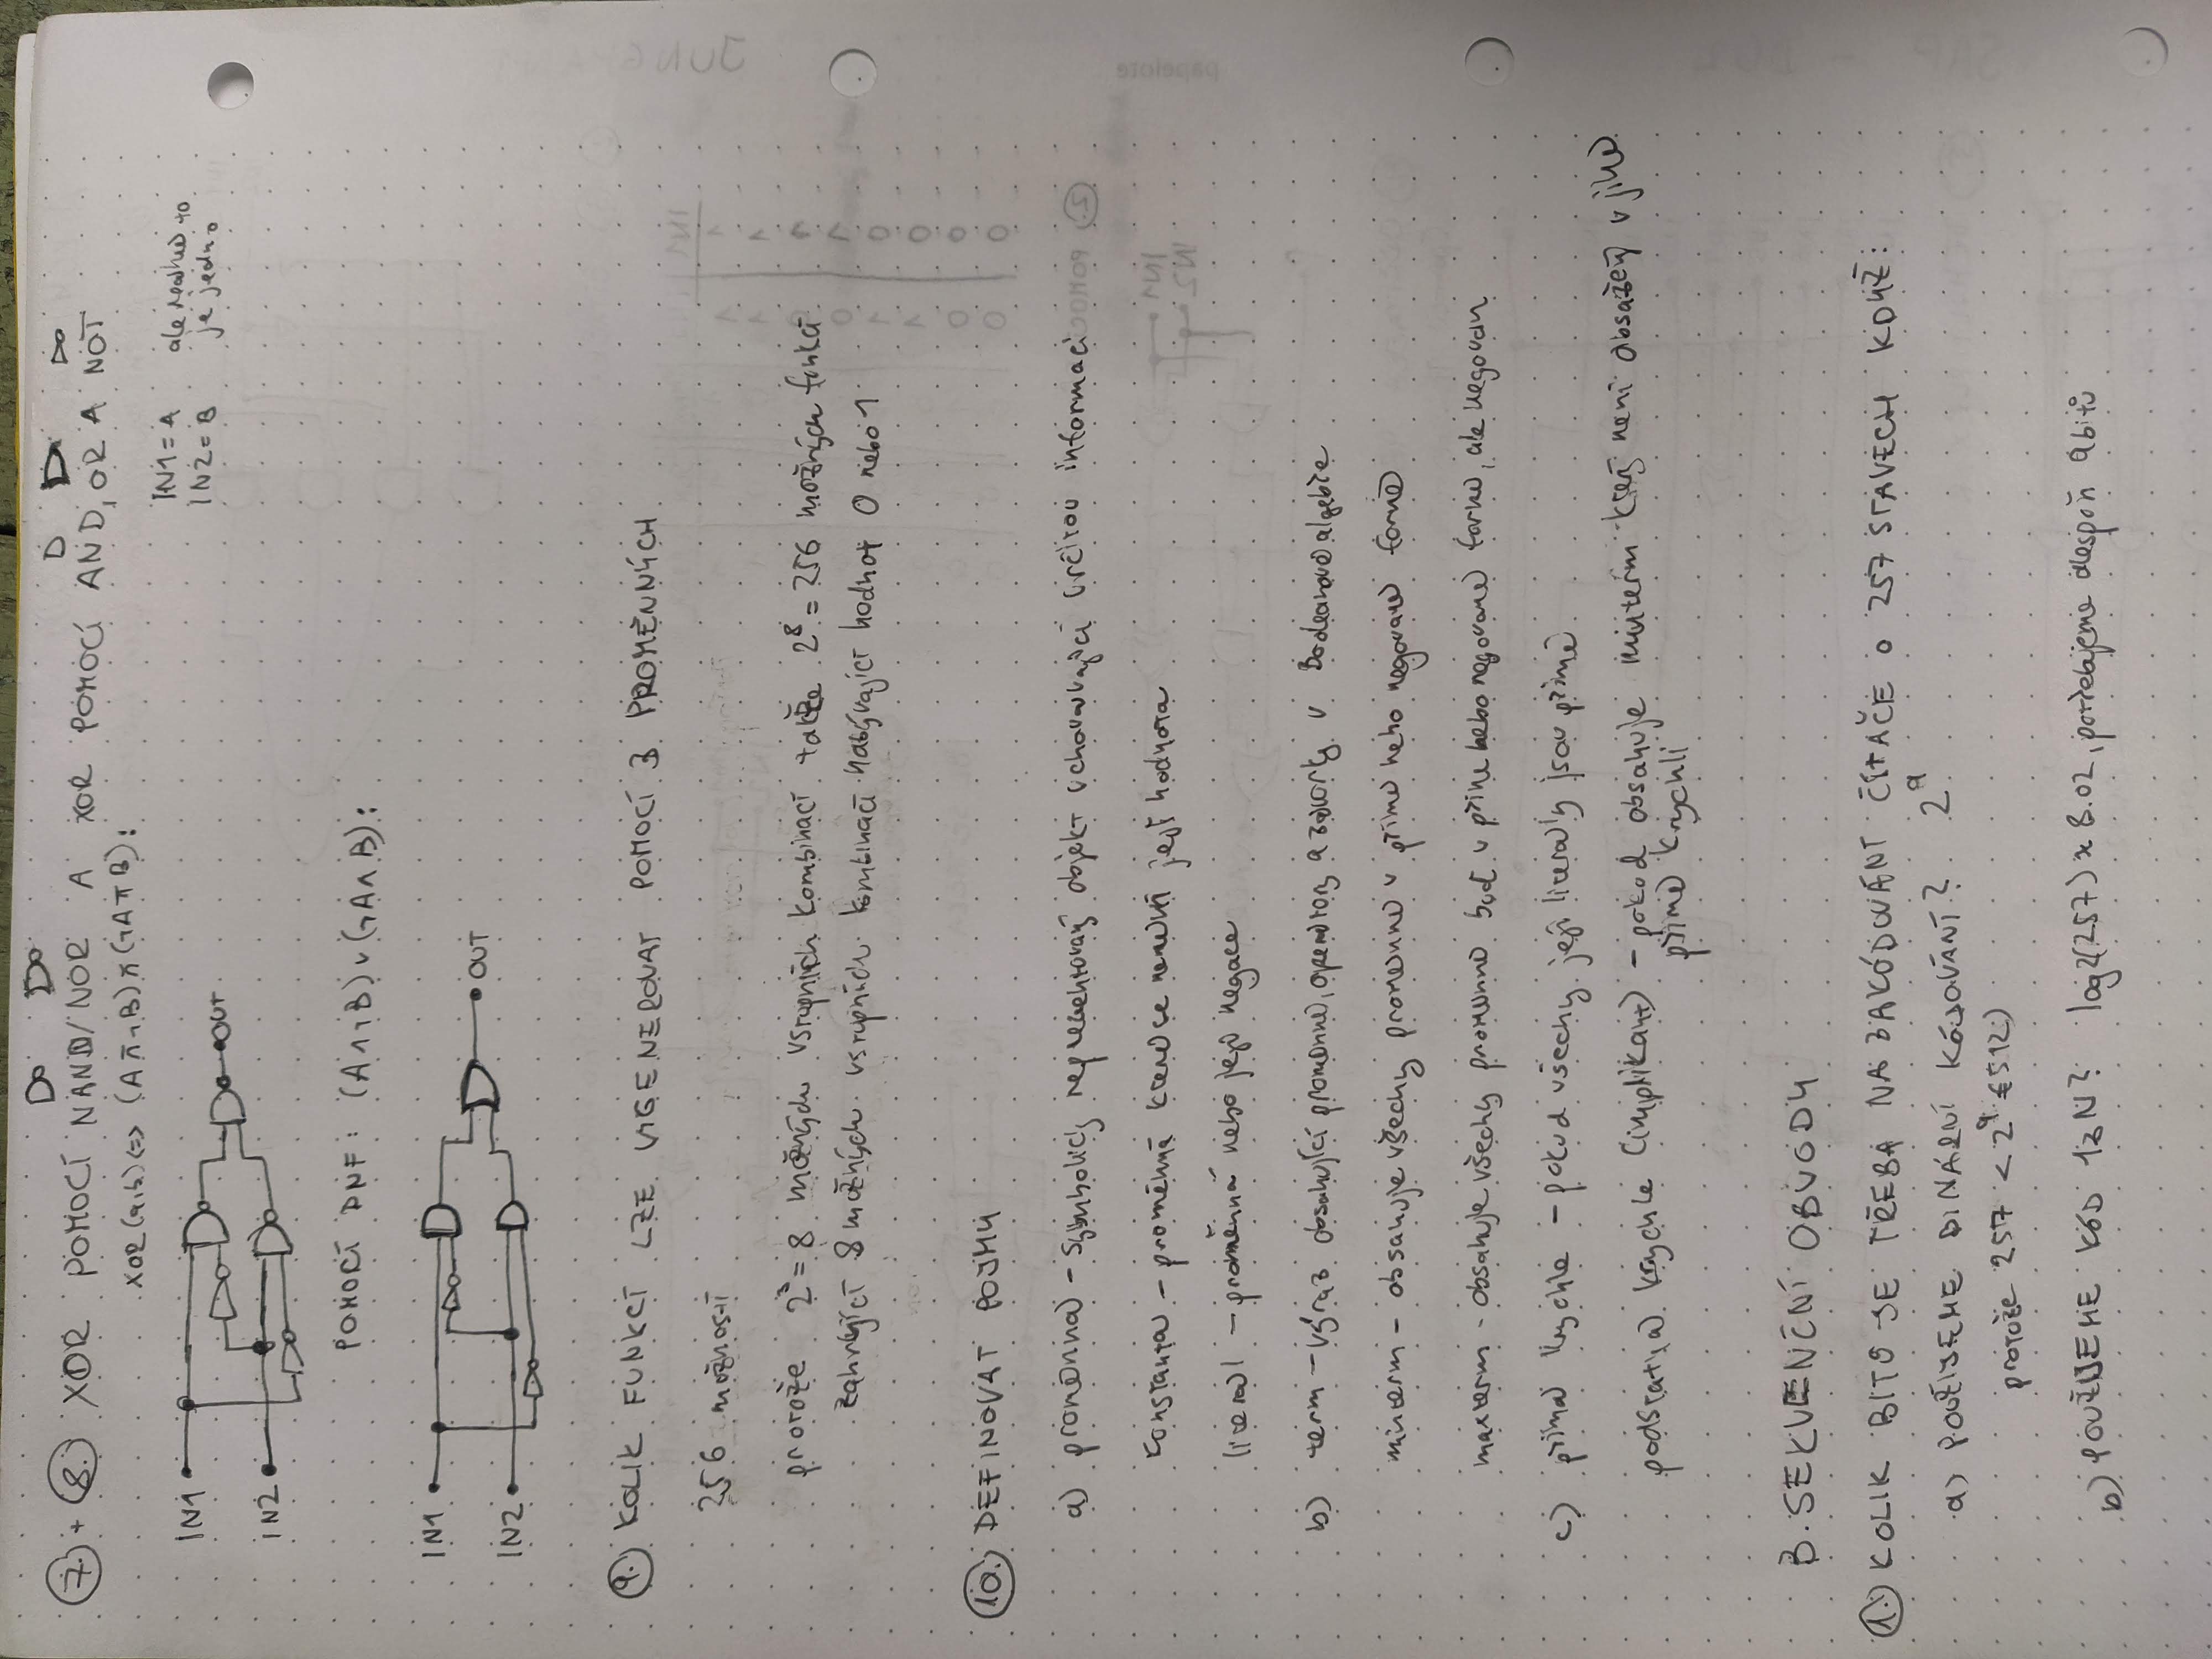 7. + 8. XOR POMOCÍ NAND/NOR A XOR POMOCÍ AND, OR A NOT
XOR(a,b) <=> (A ⊼ ¬B) ⊼ (¬A ⊼ B):
IN1 = A ale reálně to
IN2 = B je jedno
IN1
OUT
IN2
POMOCÍ DNF: (A ∧ ¬B) ∨ (¬A ∧ B):
IN1
OUT
IN2
9. KOLIK FUNKCÍ LZE VYGENEROVAT POMOCÍ 3 PROMĚNNÝCH
256 možností
protože 2³ = 8 možných vstupních kombinací takže 2⁸ = 256 možných funkcí
zahrnující 8 možných vstupních kombinací nabývající hodnot 0 nebo 1
10. DEFINOVAT POJMY
a) proměnná – symbolicky reprezentovaný objekt uchovávající určitou informaci
konstanta – proměnná které se nemění její hodnota
literál – proměnná nebo její negace
b) term – výraz obsahující proměnné, operátory a závorky v Booleanově algebře
minterm – obsahuje všechny proměnné v přímé nebo negované formě
maxterm - obsahuje všechny proměnné buď v přímé nebo negované formě, ale negovan
c) přímá krychle – pokud všechny její literály jsou přímé
podstatná krychle (implikant) – pokud obsahuje minterm který není obsažený v jiné
přímé krychli
B. SEKVENČNÍ OBVODY
1. KOLIK BITŮ JE TŘEBA NA ZAKÓDOVÁNÍ ČÍTAČE O 257 STAVECH KDYŽ:
a) POUŽIJEME BINÁRNÍ KÓDOVÁNÍ? 2⁹
protože 257 < 2⁹ (512)
b) POUŽIJEME KÓD 1 z N? log2(257) ≈ 8.02, potřebujeme alespoň 9 bitů